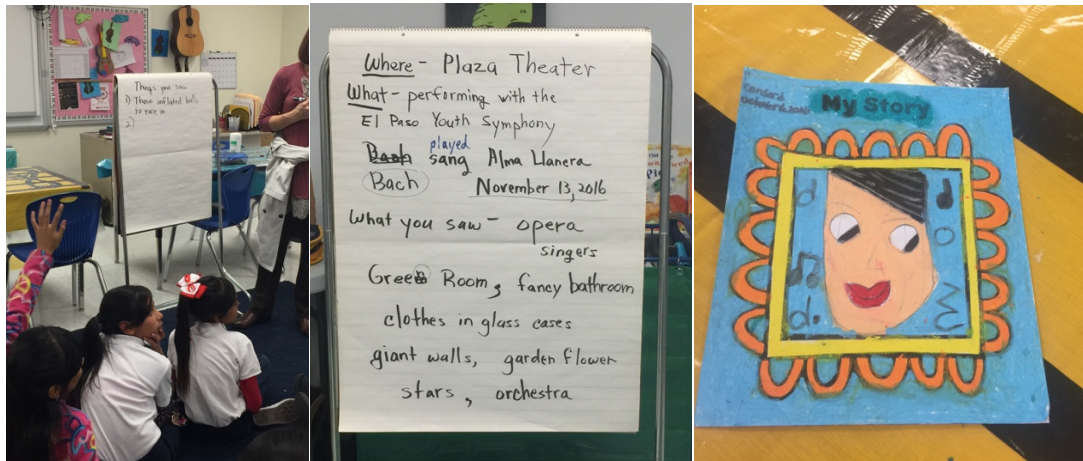 Things you saw
1) Those inflated balls
to race in
2)
Where - Plaza Theater
What - performing with the
El Paso Youth Symphony
played
Bach sang Alma Llanera
Bach November 13, 2016
What you saw - opera
singers
Green Room, fancy bathroom
clothes in glass cases
giant walls, garden flower
stars, orchestra
My Story